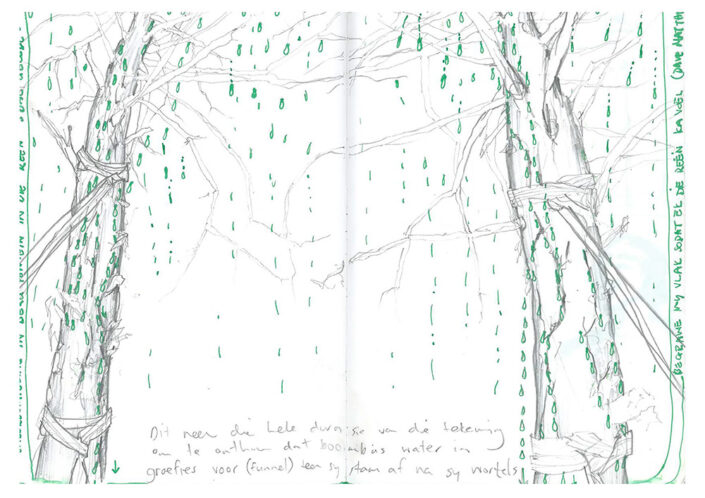 IN DIE REËN
Dit neem die hele durasie van die tekening
om te onthou dat boombas water in
groefies voer (funnel) teen sy stam af na sy wortels
BEGRAWE MY VLAK SODAT EK DIE REËN KA VOEL (DAVE MATTH